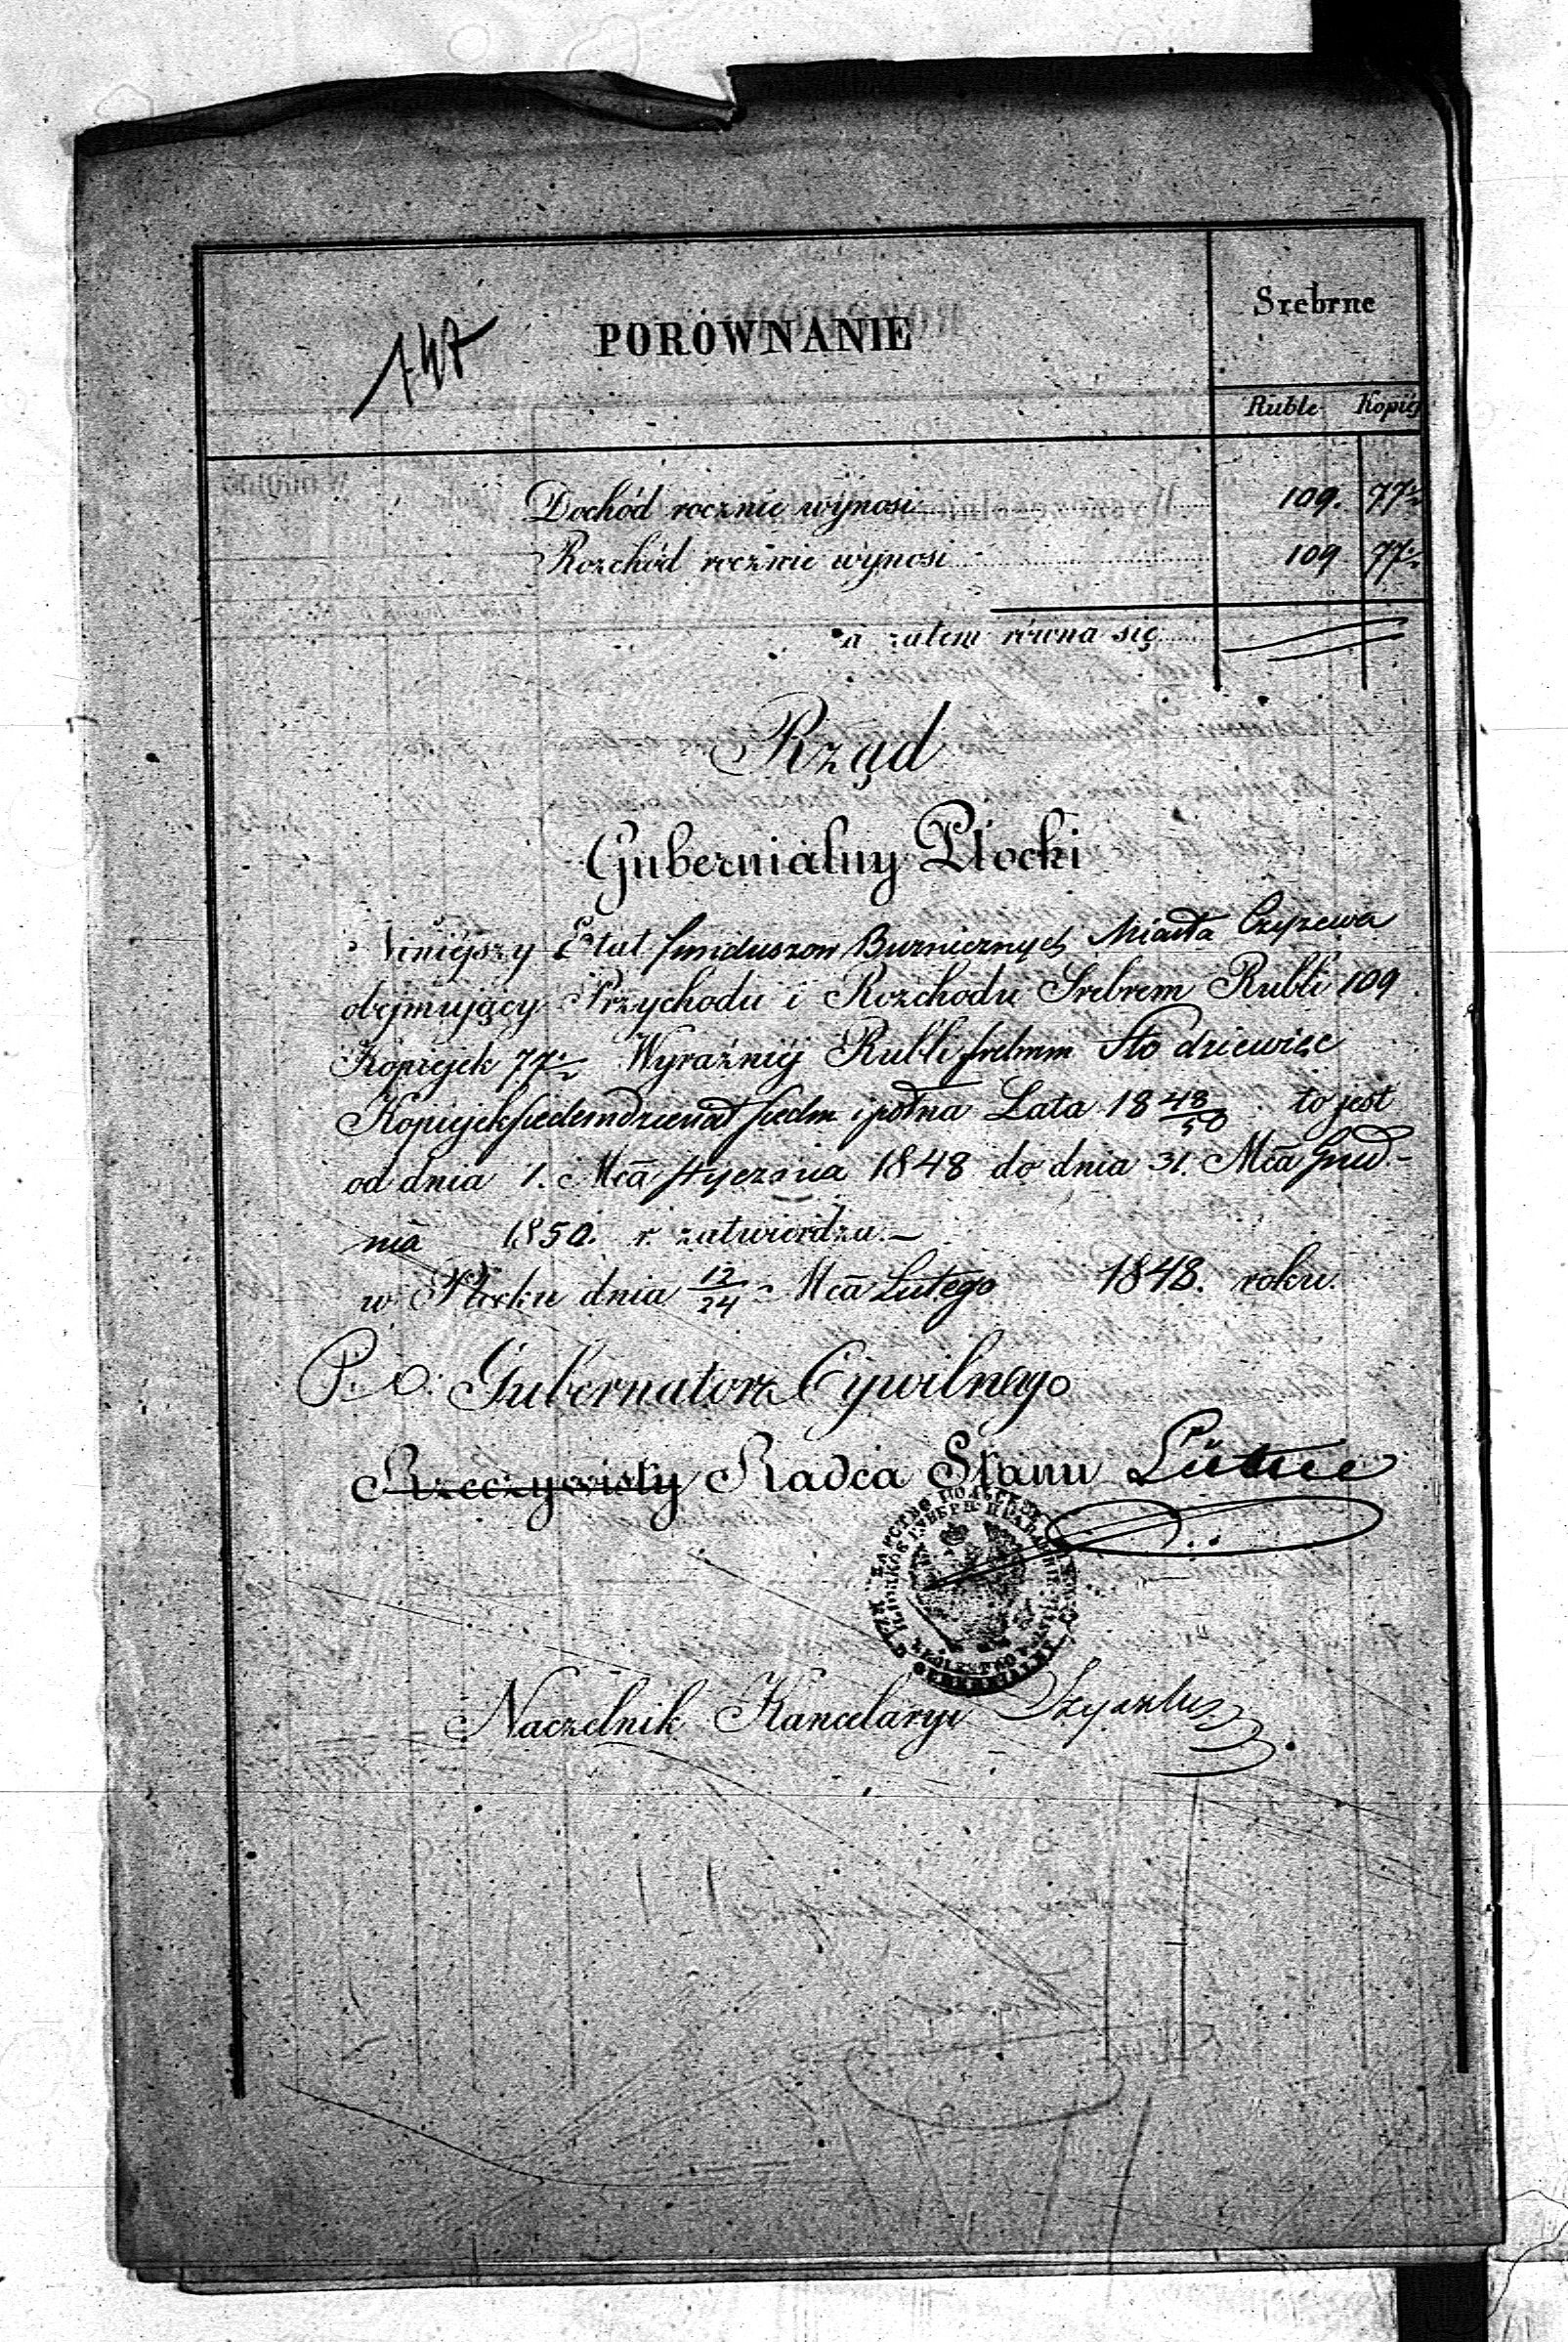 147
PORÓWNANIE
Srebrne
Ruble Kopiej
Dochód rocznie wynosi 109. 77½
Rozchód rocznie wynosi 109 77½
a zatem równa się
Rząd
Gubernialny Płocki
Niniejszy Etat funduszow Burnicznych Miasta Czyżewa
obejmujący Przychodu i Rozchodu Srebrem Rubli 109
Kopiejek 77½ Wyraźniej Rubli srebrem Sto dziewięc
Kopiejek siedemdziesiąt siedm i pół na Lata 1848/50 to jest
od dnia 1. Mca Stycznia 1848 do dnia 31. Mca Grud-
nia 1850. r. zatwierdza.–
w Płocku dnia 12/24 Mca Lutego 1848. roku.
P. O. Gubernatora Cywilnego
Rzeczywisty Radca Stanu
Naczelnik Kancelaryi